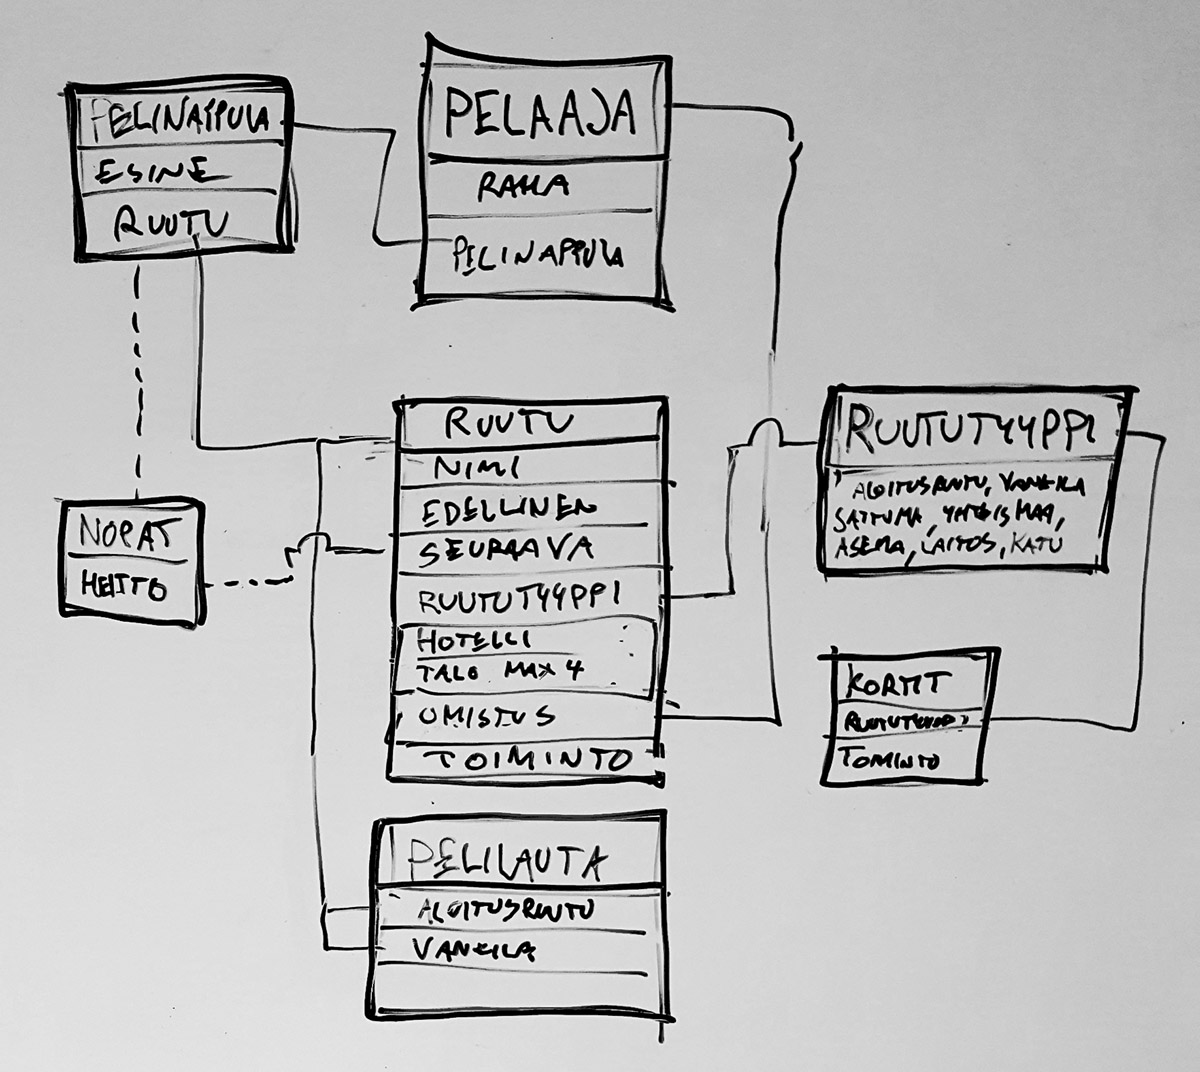 PELINAPPULA
ESINE
RUUTU
PELAAJA
RAHA
PELINAPPULA
NOPAT
HEITTO
RUUTU
NIMI
EDELLINEN
SEURAAVA
RUUTUTYYPPI
HOTELLI
TALO MAX 4
OMISTUS
TOIMINTO
RUUTUTYYPPI
ALOITUSRUUTU, VANKILA
SATTUMA, YHTEISMAA,
ASEMA, LAITOS, KATU
KORTIT
RUUTUTYYPPI
TOMINTO
PELILAUTA
ALOITUSRUUTU
VANKILA